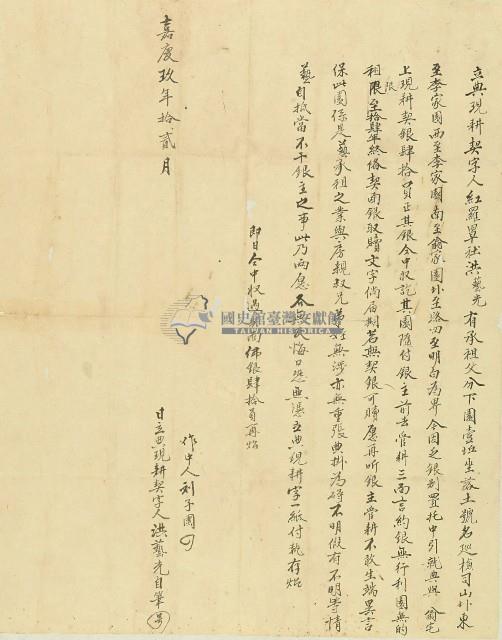 立典現耕契字人紅羅罩社洪藝光有承祖父分下園壹坵坐落土號名巡檢司山卦東
至李家園西至李家園南至翁家園北至路四至明白為界今因乏銀別置托中引就典與翁宅
上現耕契銀肆拾員正其銀仝中收訖其園隨付銀主前去管耕三面言約銀無行利園無的
租限至拾肆年終備契面銀取贖文字倘屆期若無契銀可贖愿再聽銀主管耕不敢生端異言
限
保此園係是藝承祖之業與房親叔兄弟姪無涉亦無重張典掛為碍不明倘有不明等情
藝自抵當不干銀主之事此乃兩愿各無反悔口恐無憑立典現耕字一紙付執存炤
即日仝中收過契面佛銀肆拾員再炤
國史館臺灣文獻館
TAIWAN HISTORICA
作中人利子園
嘉慶玖年拾貳月
日立典現耕契字人洪藝光自筆